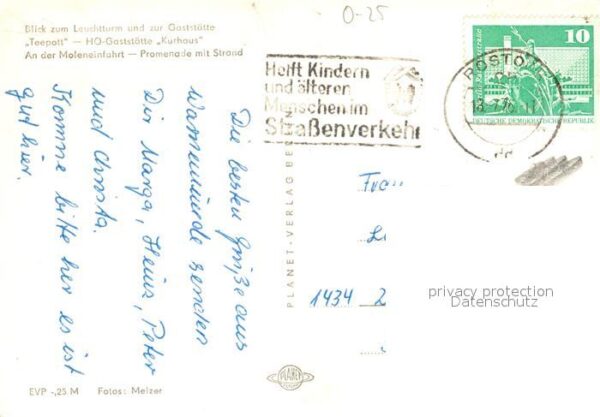 Blick zum Leuchtturm und zur Gaststätte
„Teepott" — HO-Gaststätte „Kurhaus"
An der Moleneinfahrt — Promenade mit Strand
0-25
Helft Kindern
und älteren
Menschen im
Straßenverkehr
ROSTOCK
10
DEUTSCHE DEMOKRATISCHE REPUBLIK
Die besten Grüße aus
Warnemünde senden
Dir Marga, Heinz, Peter
und Christa.
Komme bitte her es ist
gut hier.
PLANET-VERLAG BERLIN
Frau
1434
privacy protection
Datenschutz
PLANET
EVP -,25 M Fotos: Melzer